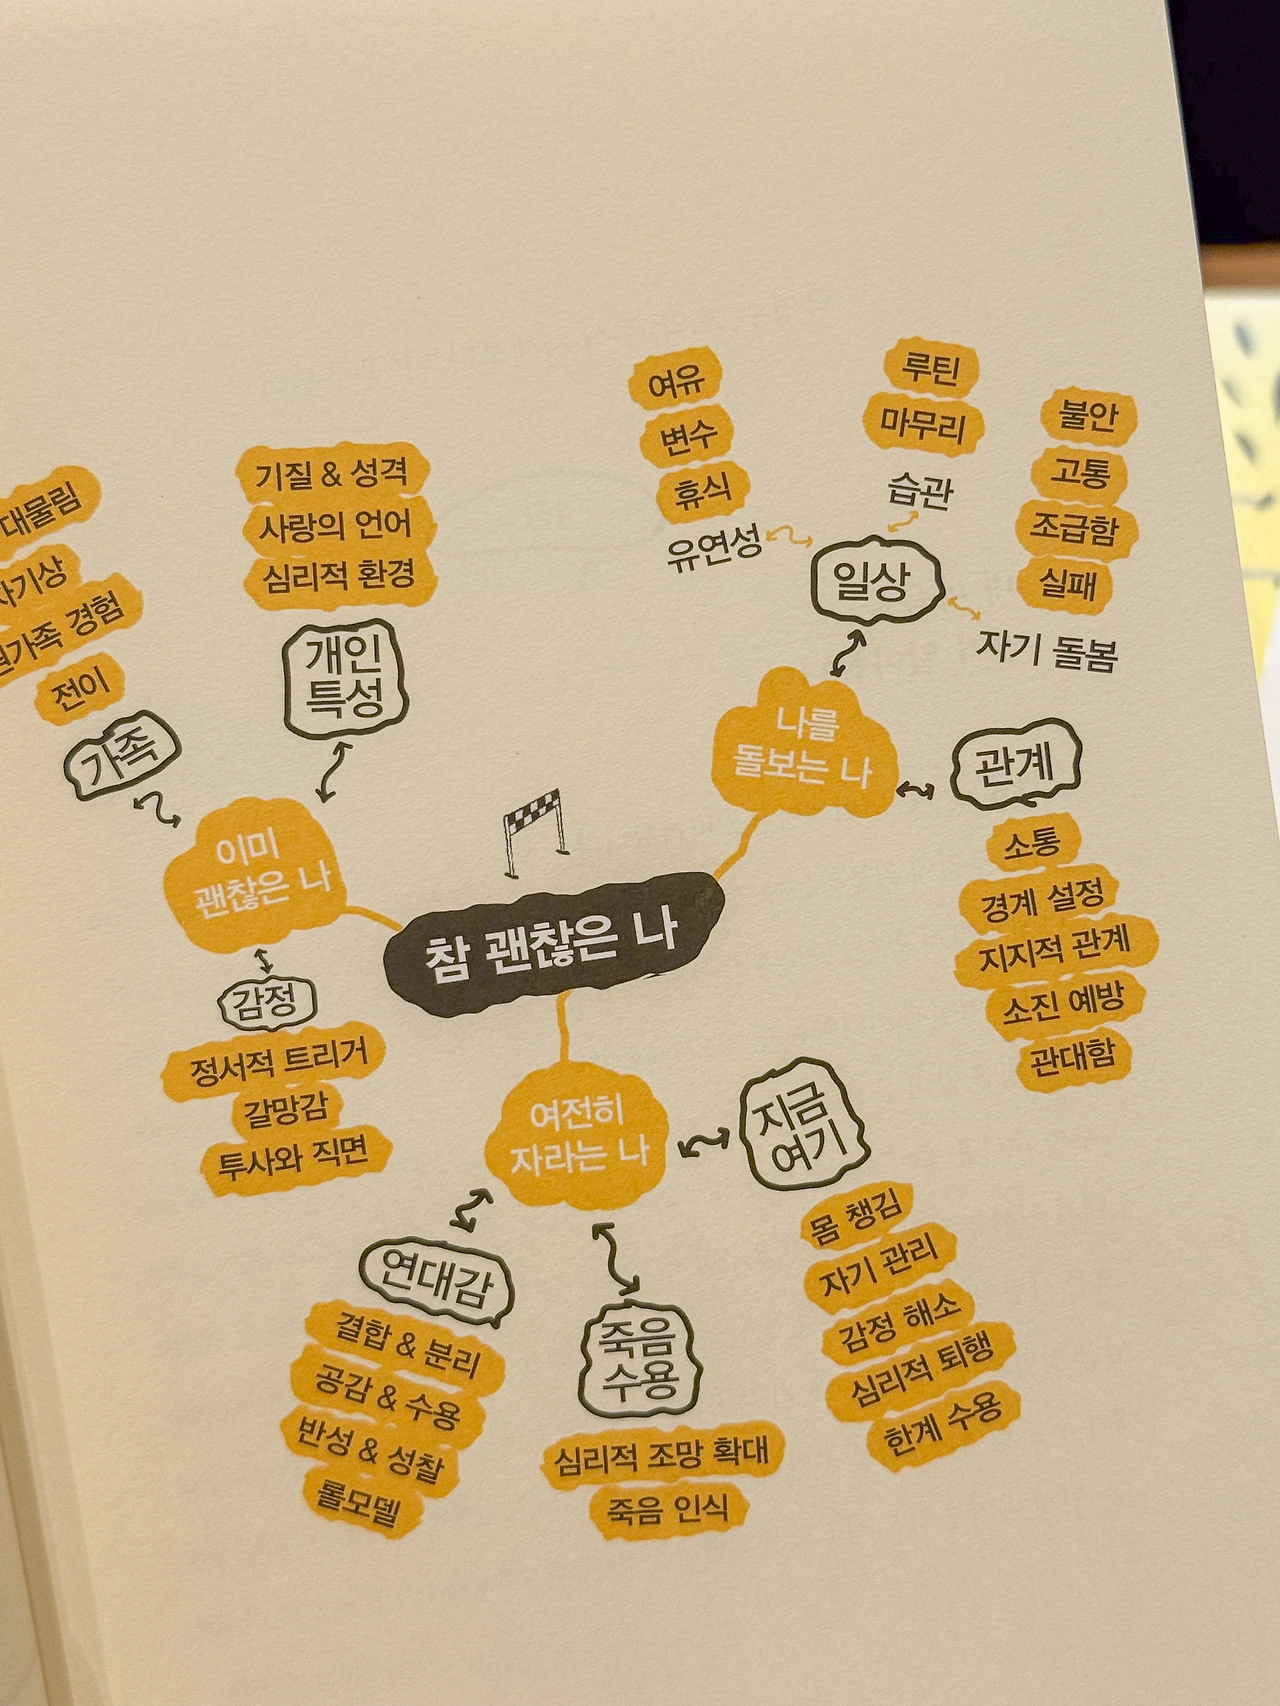 참 괜찮은 나
이미
괜찮은 나
가족
대물림
자기상
원가족 경험
전이
개인
특성
기질 & 성격
사랑의 언어
심리적 환경
감정
정서적 트리거
갈망감
투사와 직면
나를
돌보는 나
일상
유연성
여유
변수
휴식
습관
루틴
마무리
자기 돌봄
불안
고통
조급함
실패
관계
소통
경계 설정
지지적 관계
소진 예방
관대함
여전히
자라는 나
지금
여기
몸 챙김
자기 관리
감정 해소
심리적 퇴행
한계 수용
죽음
수용
심리적 조망 확대
죽음 인식
연대감
결합 & 분리
공감 & 수용
반성 & 성찰
롤모델